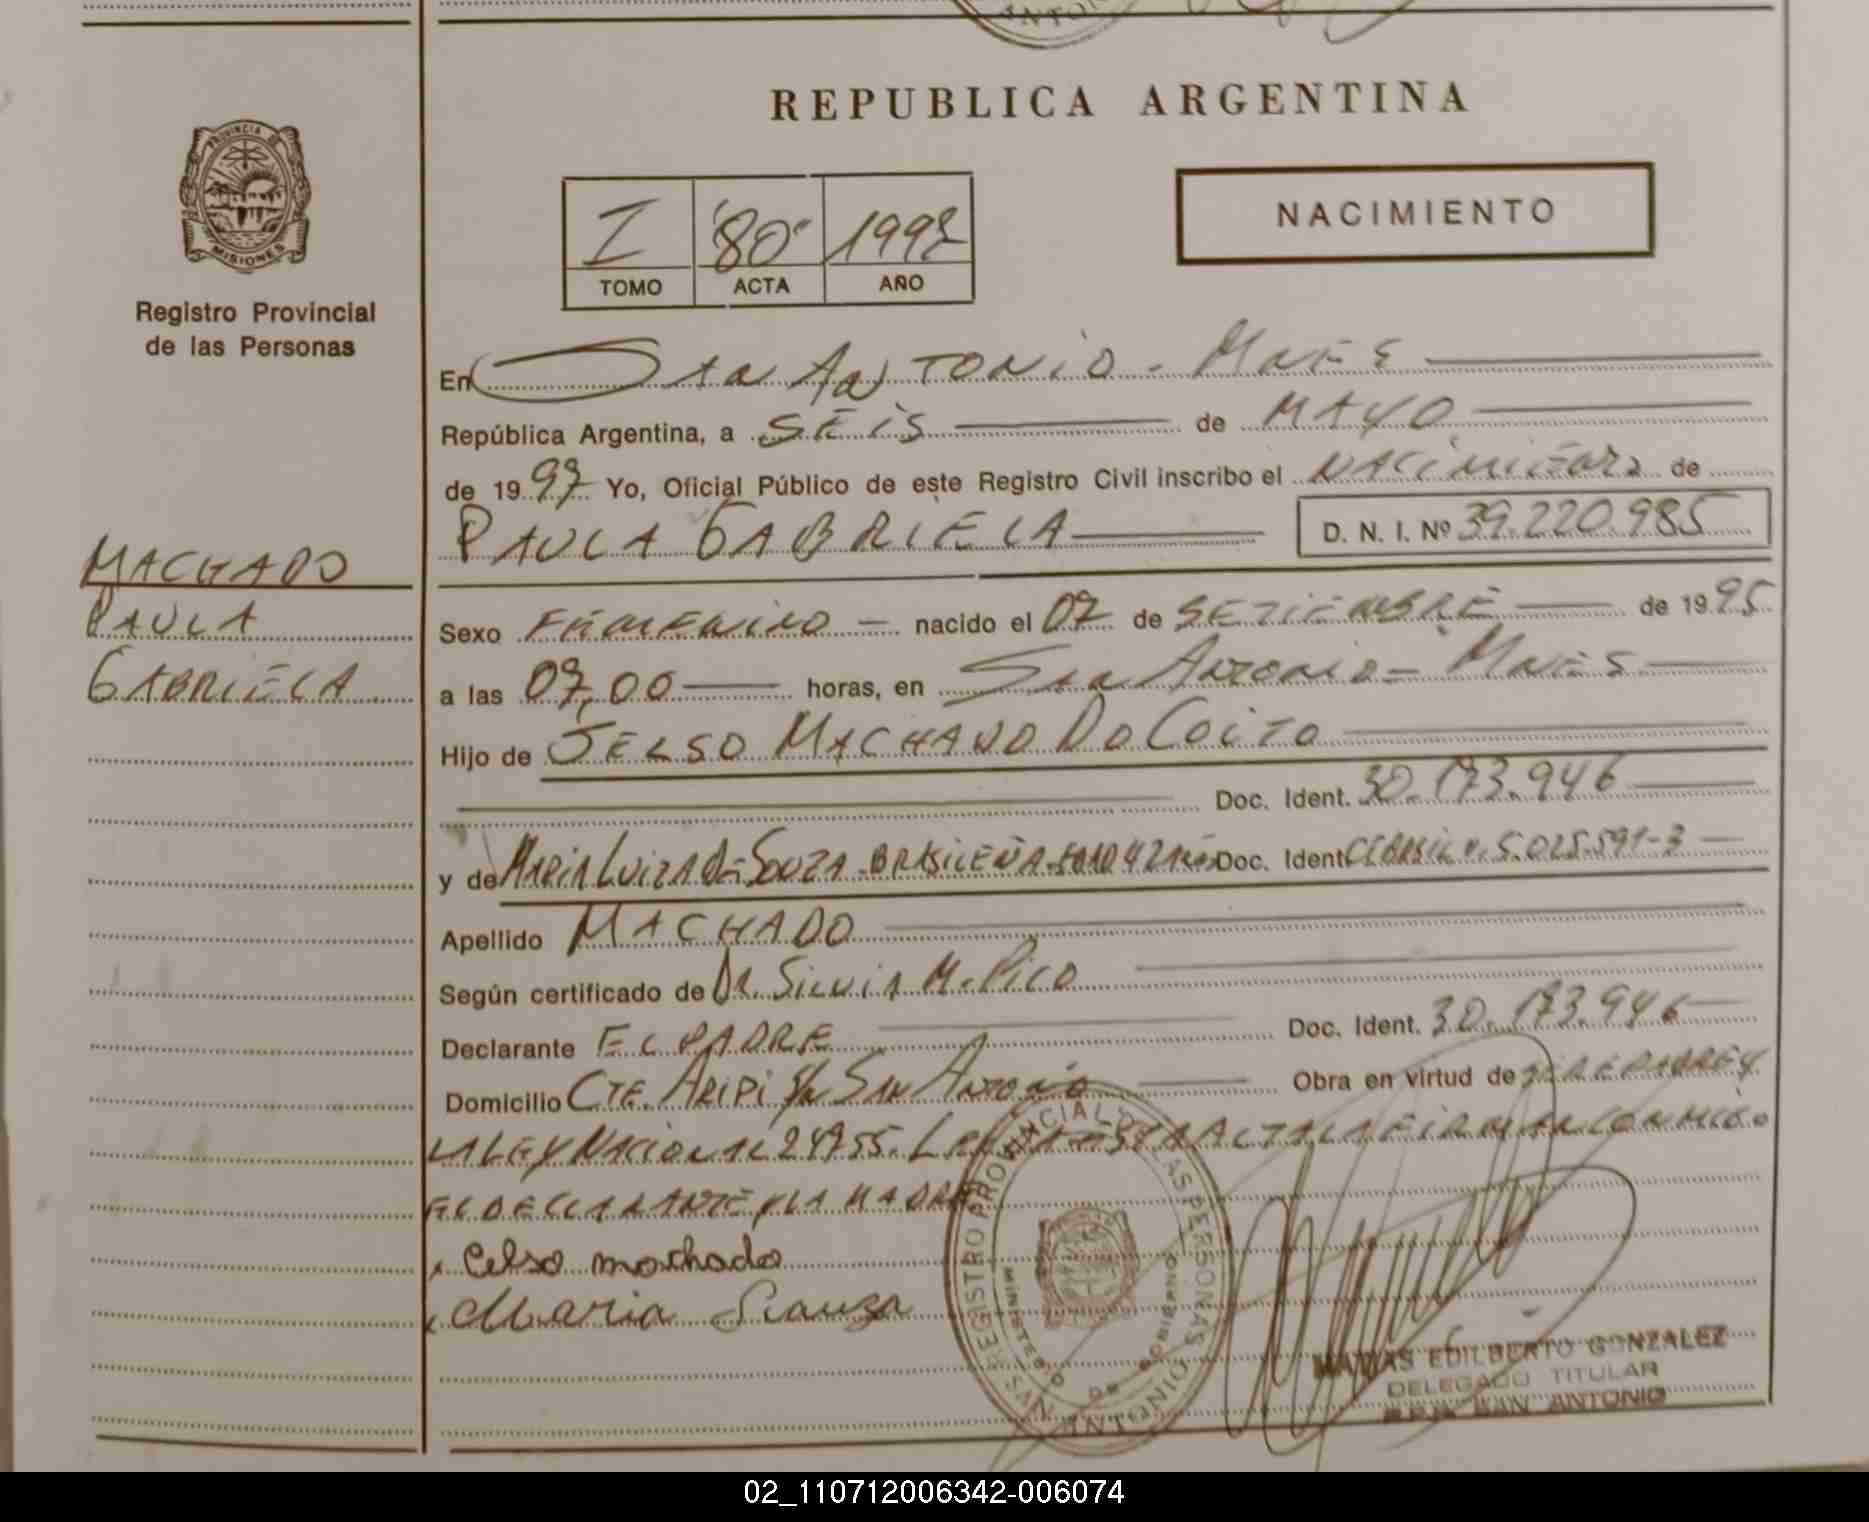 REPUBLICA ARGENTINA
PROVINCIA DE
MISIONES
Registro Provincial
de las Personas
I 80
TOMO ACTA AÑO
NACIMIENTO
En San Antonio - Mnes
República Argentina, a SEIS de MAYO
de 1997 Yo, Oficial Público de este Registro Civil inscribo el NACIMIENTO de
PAULA GABRIELA D. N. I. Nº 39.220.985
MACHADO
PAULA
GABRIELA
Sexo FEMENINO nacido el 07 de SETIEMBRE de 1995
a las 07,00 horas, en San Antonio - Mnes
Hijo de JELSO MACHADO DO COITO
Doc. Ident. 30.173.946
y de MARIA LUIZA DE SOUZA - BRASILEÑA - Doc. Ident. CIBRASIL Nº 5.025.591-3
Apellido MACHADO
Según certificado de DR. SILVIA M. PICO
Declarante EL PADRE Doc. Ident. 30.173.946
Domicilio CTE. ARIPI S/N SAN ANTONIO Obra en virtud de
LA LEY NACIONAL 24755. LEIDA ESTA ACTA LA FIRMAN CONMIGO
EL DECLARANTE y LA MADRE
x Celso machado
x Maria Sauza
REGISTRO PROVINCIAL DE LAS PERSONAS
MINISTERIO DE GOBIERNO
SAN ANTONIO
MATIAS EDILBERTO GONZALEZ
DELEGADO TITULAR
R.P.P. SAN ANTONIO
02_110712006342-006074